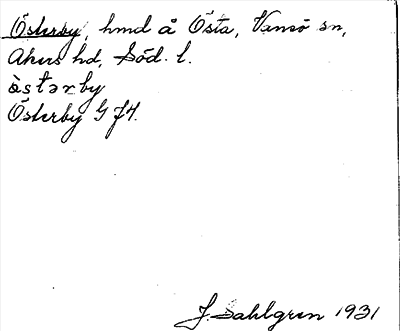 Österby, hmd å Östa, Vansö sn,
Åkers hd, Söd. l.
òstərby
Österby G J4.
J. Sahlgren 1931